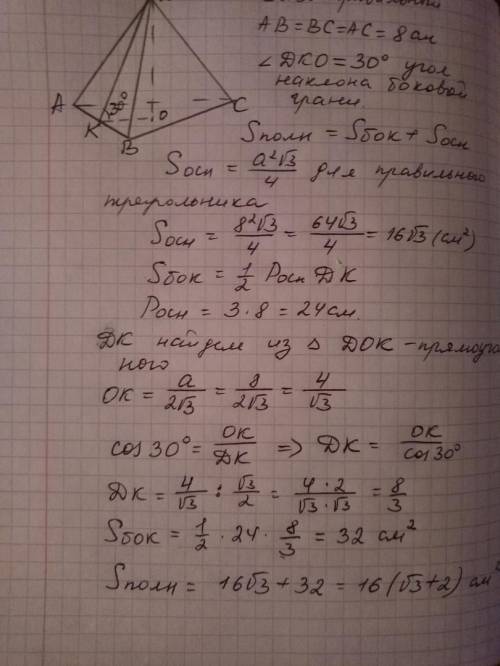 AB=BC=AC=8см
∠ДКО=30° угол
наклона боковой
грани.
А
К
В
30°
О
С
Sполн = Sбок + Sосн
Sосн = a²√3/4 для правильного
треугольника
Sосн = 8²√3/4 = 64√3/4 = 16√3 (см²)
Sбок = 1/2 Pосн ДК
Pосн = 3·8 = 24см.
ДК найдем из △ ДОК-прямоуголь
ного
ОК = a/2√3 = 8/2√3 = 4/√3
cos 30° = ОК/ДК ⇒ ДК = ОК/cos30°
ДК = 4/√3 : √3/2 = 4·2/√3·√3 = 8/3
Sбок = 1/2 · 24 · 8/3 = 32 см²
Sполн = 16√3 + 32 = 16(√3+2) см²